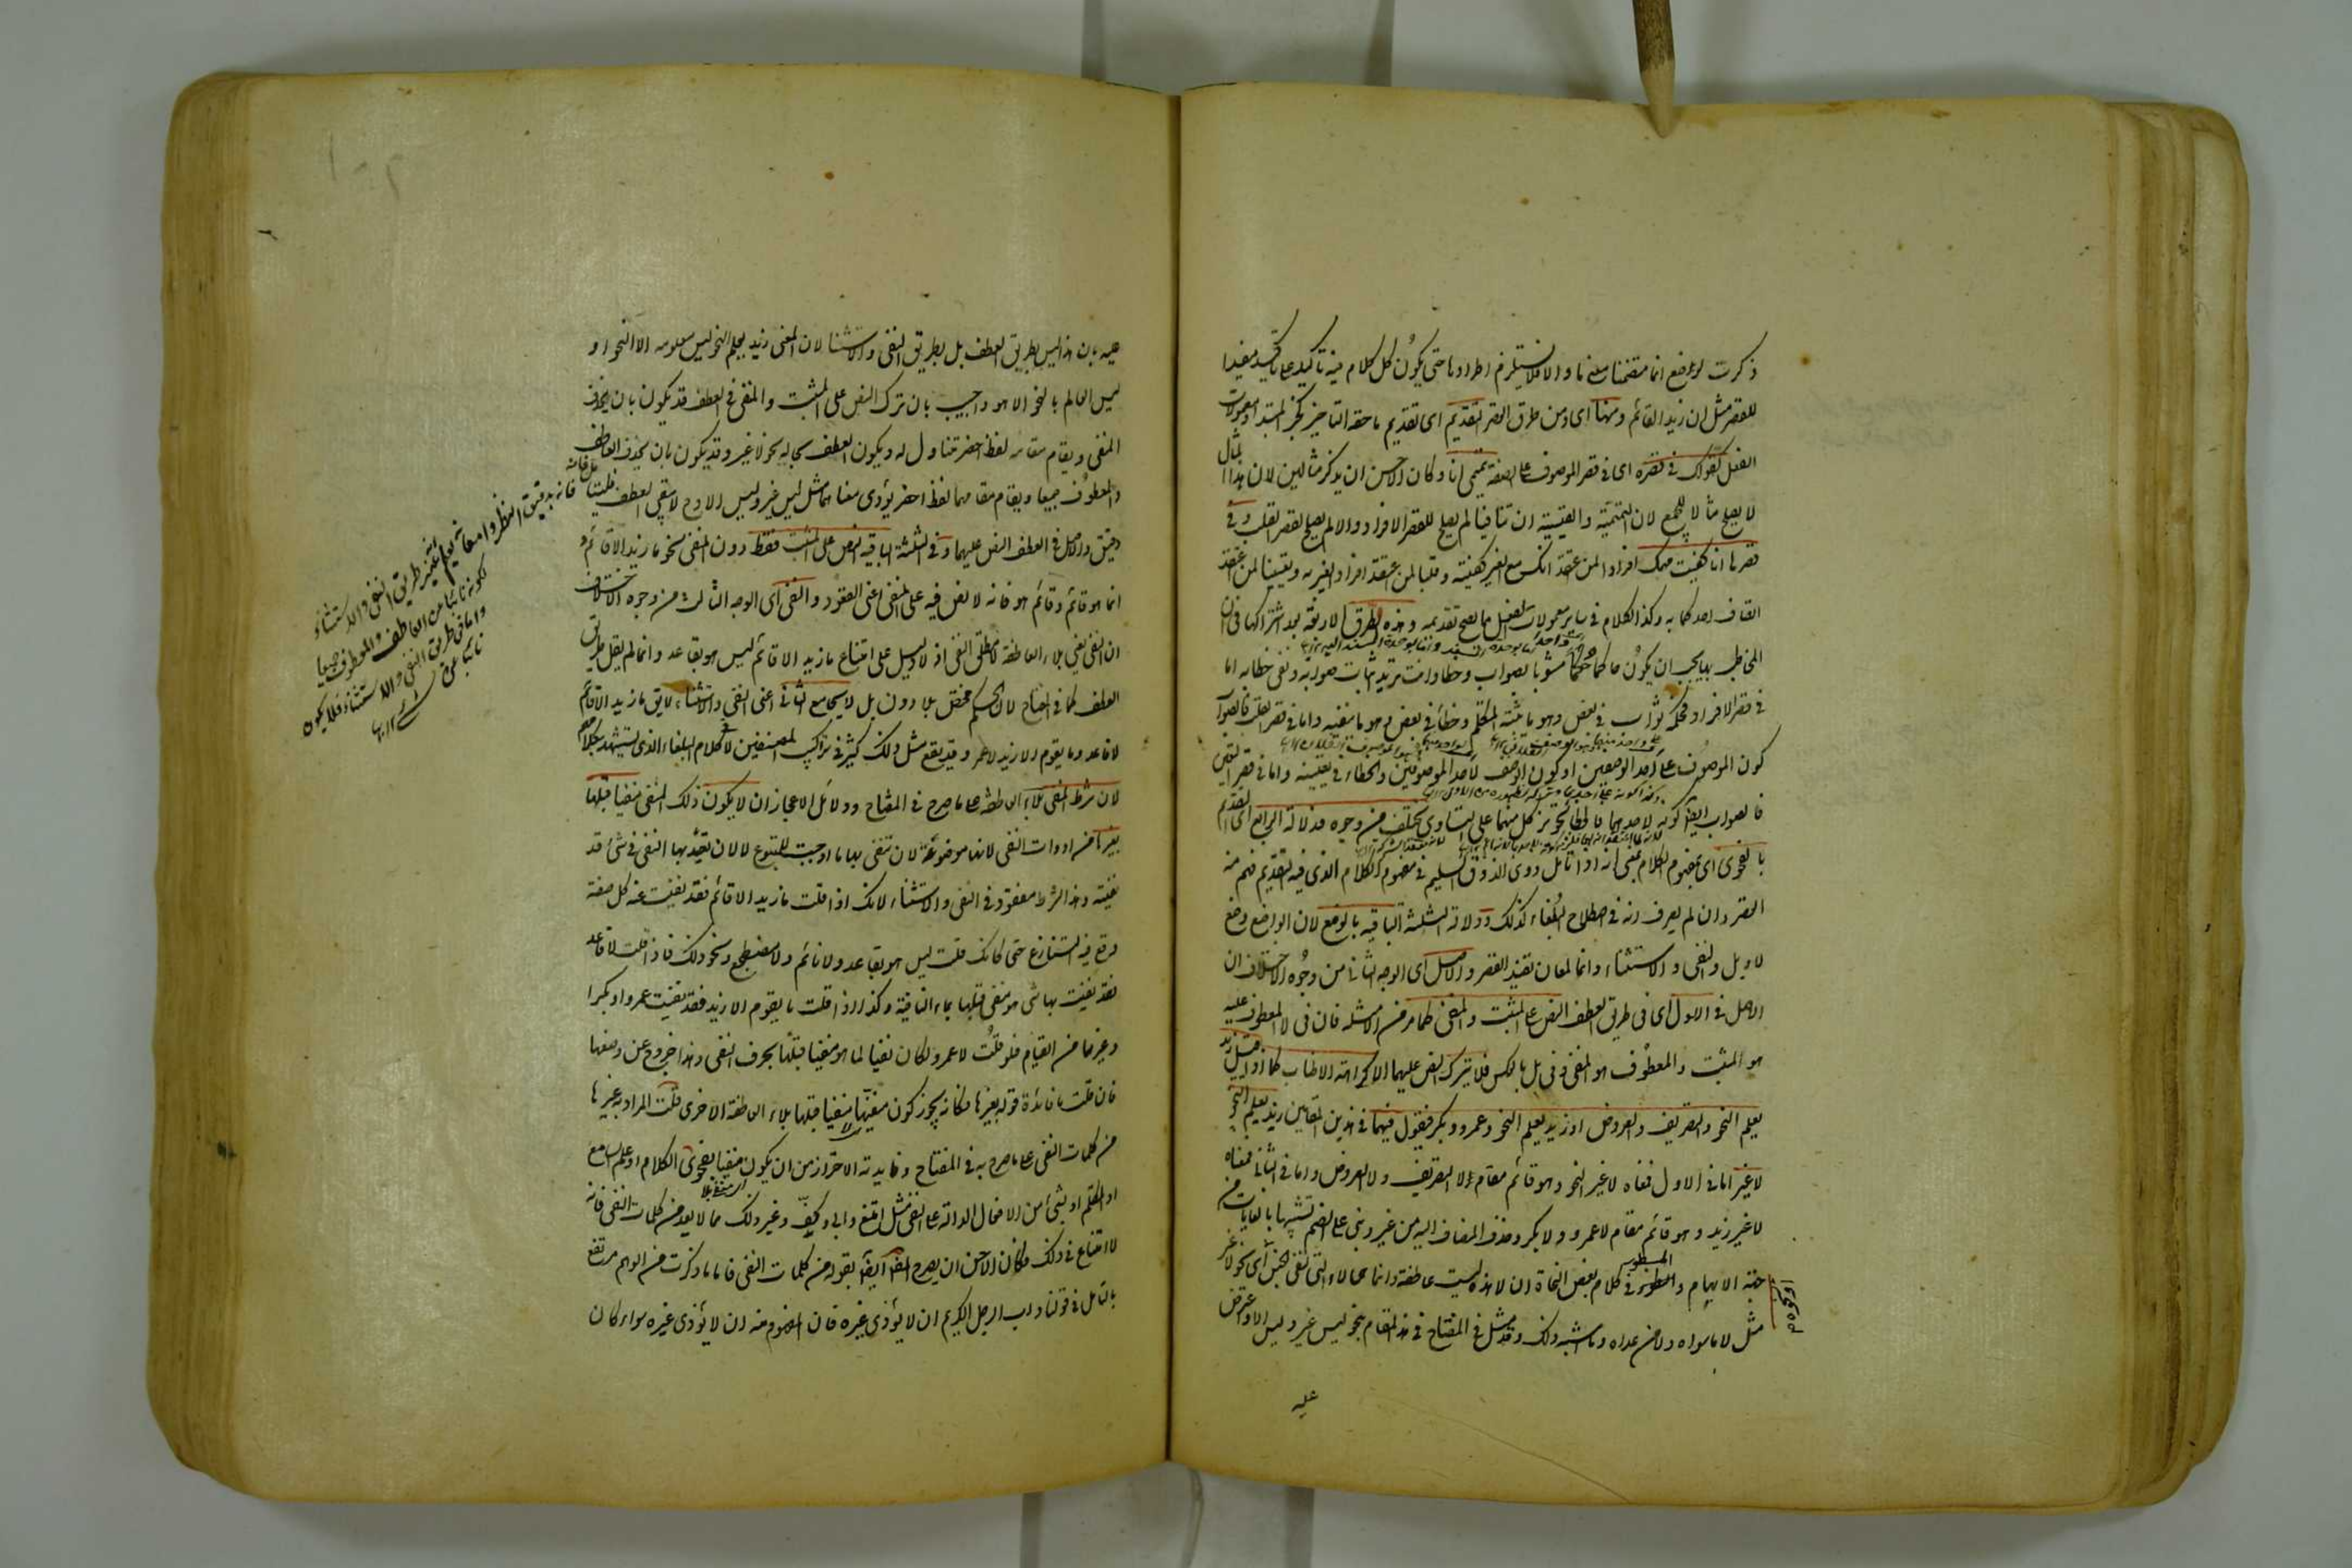 ذكرت لوضع انما متضمنا معنى ما والا فلا يستلزم اطرادها حتى يكون كل كلام فيه تاكيد على تاكيد مفيدا
للقصر مثل ان زيدا لقائم ومنها اى ومن طرق القصر التقديم اى تقديم ما حقه التاخير كخبر المبتدا ومعمولات
الفعل كقولك فى قصره اى فى قصر الموصوف على الصفة تميمى انا وكان الاحسن ان يذكر مثالين لان هذا المثال
لا يصلح مثالا للجميع لان التميمية والقيسية ان تنافيا لم يصلح لقصر الافراد والا لم يصلح لقصر القلب وفى
قصرها انا كفيت مهمك افرادا لمن اعتقد انك مع الغير كفيته وقلبا لمن اعتقد افراد الغير به وتعيينا لمن اعتقد
اتصاف احدكما به وكذا الكلام فى ساير معمولات الفعل مما يصح تقديمه وهذه الطرق الاربعة بعد اشتراكها فى ان
المخاطب بها يجب ان يكون حاكما حكما مشوبا بصواب وخطاء وانت تريد اثبات صوابه ونفى خطائه اما
فى قصر الافراد فحكمه صواب فى بعض وهو ما يثبته المتكلم وخطاء فى بعض وهو ما ينفيه واما فى قصر القلب فالصواب
كون الموصوف على احد الوصفين او كون الوصف لاحد الموصوفين والخطاء فى تعيينه واما فى قصر التعيين
فالصواب ايضا كونه لاحدهما والخطاء تجويز كل منهما على التساوى تختلف من وجوه فدلالة الرابع اى التقديم
بالفحوى اى بمفهوم الكلام بمعنى انه اذا تامل ذوى الذوق السليم فى مفهوم الكلام الذى فيه التقديم فهم منه
القصر وان لم يعرف انه فى اصطلاح البلغاء كذلك ودلالة الثلثة الباقية بالوضع لان الواضع وضع
لا وبل والنفى والاستثناء وانما لمعان تفيد القصر والاصل اى الوجه الثانى من وجوه الاختلاف ان
الاصل فى الاول اى فى طريق العطف النص على المثبت والمنفى كما مر من الامثلة فان فى لا المعطوف عليه
هو المثبت والمعطوف هو المنفى وفى بل بالعكس فلا يترك النص عليهما الا كراهة الاطناب كما اذا قيل زيد
يعلم النحو والتصريف والعروض او زيد يعلم النحو وعمرو وبكر فتقول فيهما فى هذين المقامين زيد يعلم النحو
لا غير اما فى الاول فمعناه لا غير النحو وهو قائم مقام لا التصريف ولا العروض واما فى الثانى فمعناه
لا غير زيد وهو قائم مقام لا عمرو ولا بكر وحذف المضاف اليه من غير وبنى على الضم تشبيها بالغايات من
جهة الابهام والمسطور فى كلام بعض النحاة ان لا هذه ليست عاطفة وانما هى لا التى لنفى الجنس اى نحو لا غير
مثل لا ما سواه ولا من عداه وما اشبه ذلك وقد مثل فى المفتاح فى هذا المقام بنحو ليس غير وليس الا واعترض
عليه
عليه بان هذا ليس بطريق العطف بل بطريق النفى والاستثنا لان المعنى زيد يعلم النحو ليس معلومه الا النحو او
ليس العالم بالنحو الا هو واجيب بان ترك النص على المثبت والمنفى فى العطف قد يكون بان يحذف
المنفى ويقام مقامه لفظ اخصر متناول له ويكون العطف بحاله نحو لا غير وقد يكون بان يحذف العاطف
والمعطوف جميعا ويقام مقامهما لفظ اخصر يؤدى معناهما مثل ليس غير وليس الا وح لا يبقى العطف
والاصل فى العطف النص عليهما وفى الثلثة الباقية النص على المثبت فقط دون المنفى نحو ما زيد الا قائم و
انما هو قائم وقائم هو فانه لا نص فيه على المنفى اعنى القعود والنفى اى الوجه الثالث من وجوه الاختلاف
ان النفى بلاء العاطفة لا مطلق النفى اذ لا دليل على امتناع ما زيد الا قائم ليس هو بقاعد وانما لم يقل طريق
العطف كما فى المفتاح لان الحكم مختص بلا دون بل لا يجامع الثانى اعنى النفى والاستثناء لا يقال ما زيد الا قائم
لا قاعد وما يقوم الا زيد لا عمرو وقد يقع مثل ذلك كثير فى تراكيب المصنفين لا فى كلام البلغاء الذى يستشهد بكلامهم
لان شرط المنفى بلاء العاطفة على ما صرح به فى المفتاح ودلائل الاعجاز ان لا يكون ذلك المنفى منفيا قبلها
بغيرها من ادوات النفى لانها موضوعة لان تنفى بها ما اوجبت للمتبوع لا لان تعيد بها النفى فى شئ قد
نفيته وهذا الشرط مفقود فى النفى والاستثناء لانك اذا قلت ما زيد الا قائم فقد نفيت عنه كل صفة
وقع فيه التنازع حتى كانك قلت ليس هو بقاعد ولا نائم ولا مضطجع ونحو ذلك فاذا قلت لا قاعد
فقد نفيت بها شئ هو منفى قبلها بماء النافية وكذا اذا قلت ما يقوم الا زيد فقد نفيت عمرو او بكرا
وغيرهما من القيام فلو قلت لا عمرو لكان نفيا لما هو منفيا قبلها بحرف النفى وهذا خروج عن وضعها
فان قلت ما فائدة قوله بغيرها فكانه يجوز كون منفيها منفيا قبلها بلاء العاطفة الاخرى قلت المراد بغيرها
من كلمات النفى على ما صرح به فى المفتاح وفايدته الاحتراز من ان يكون منفيا بفحوى الكلام او علم السامع
او المتكلم او بشئ من الافعال الدالة على النفى مثل امتنع وابى وكف وغير ذلك مما لا يعد من كلمات النفى فانه
لا امتناع فى ذلك فكان الاحسن ان يصرح ايضا بقوله من كلمات النفى فاما ما ذكرت من الوهم مرتفع
بالتامل فى قولنا داب الرجل الكريم ان لا يؤذى غيره فان المفهوم منه ان لا يؤذى غيره سواء كان